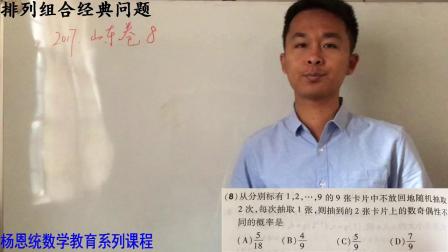 排列组合经典问题
2017 山东卷 8
(8)从分别标有1,2,…,9的9张卡片中不放回地随机抽取
2次,每次抽取1张,则抽到的2张卡片上的数奇偶性不
同的概率是
(A) 5/18 (B) 4/9 (C) 5/9 (D) 7/9
杨恩统数学教育系列课程